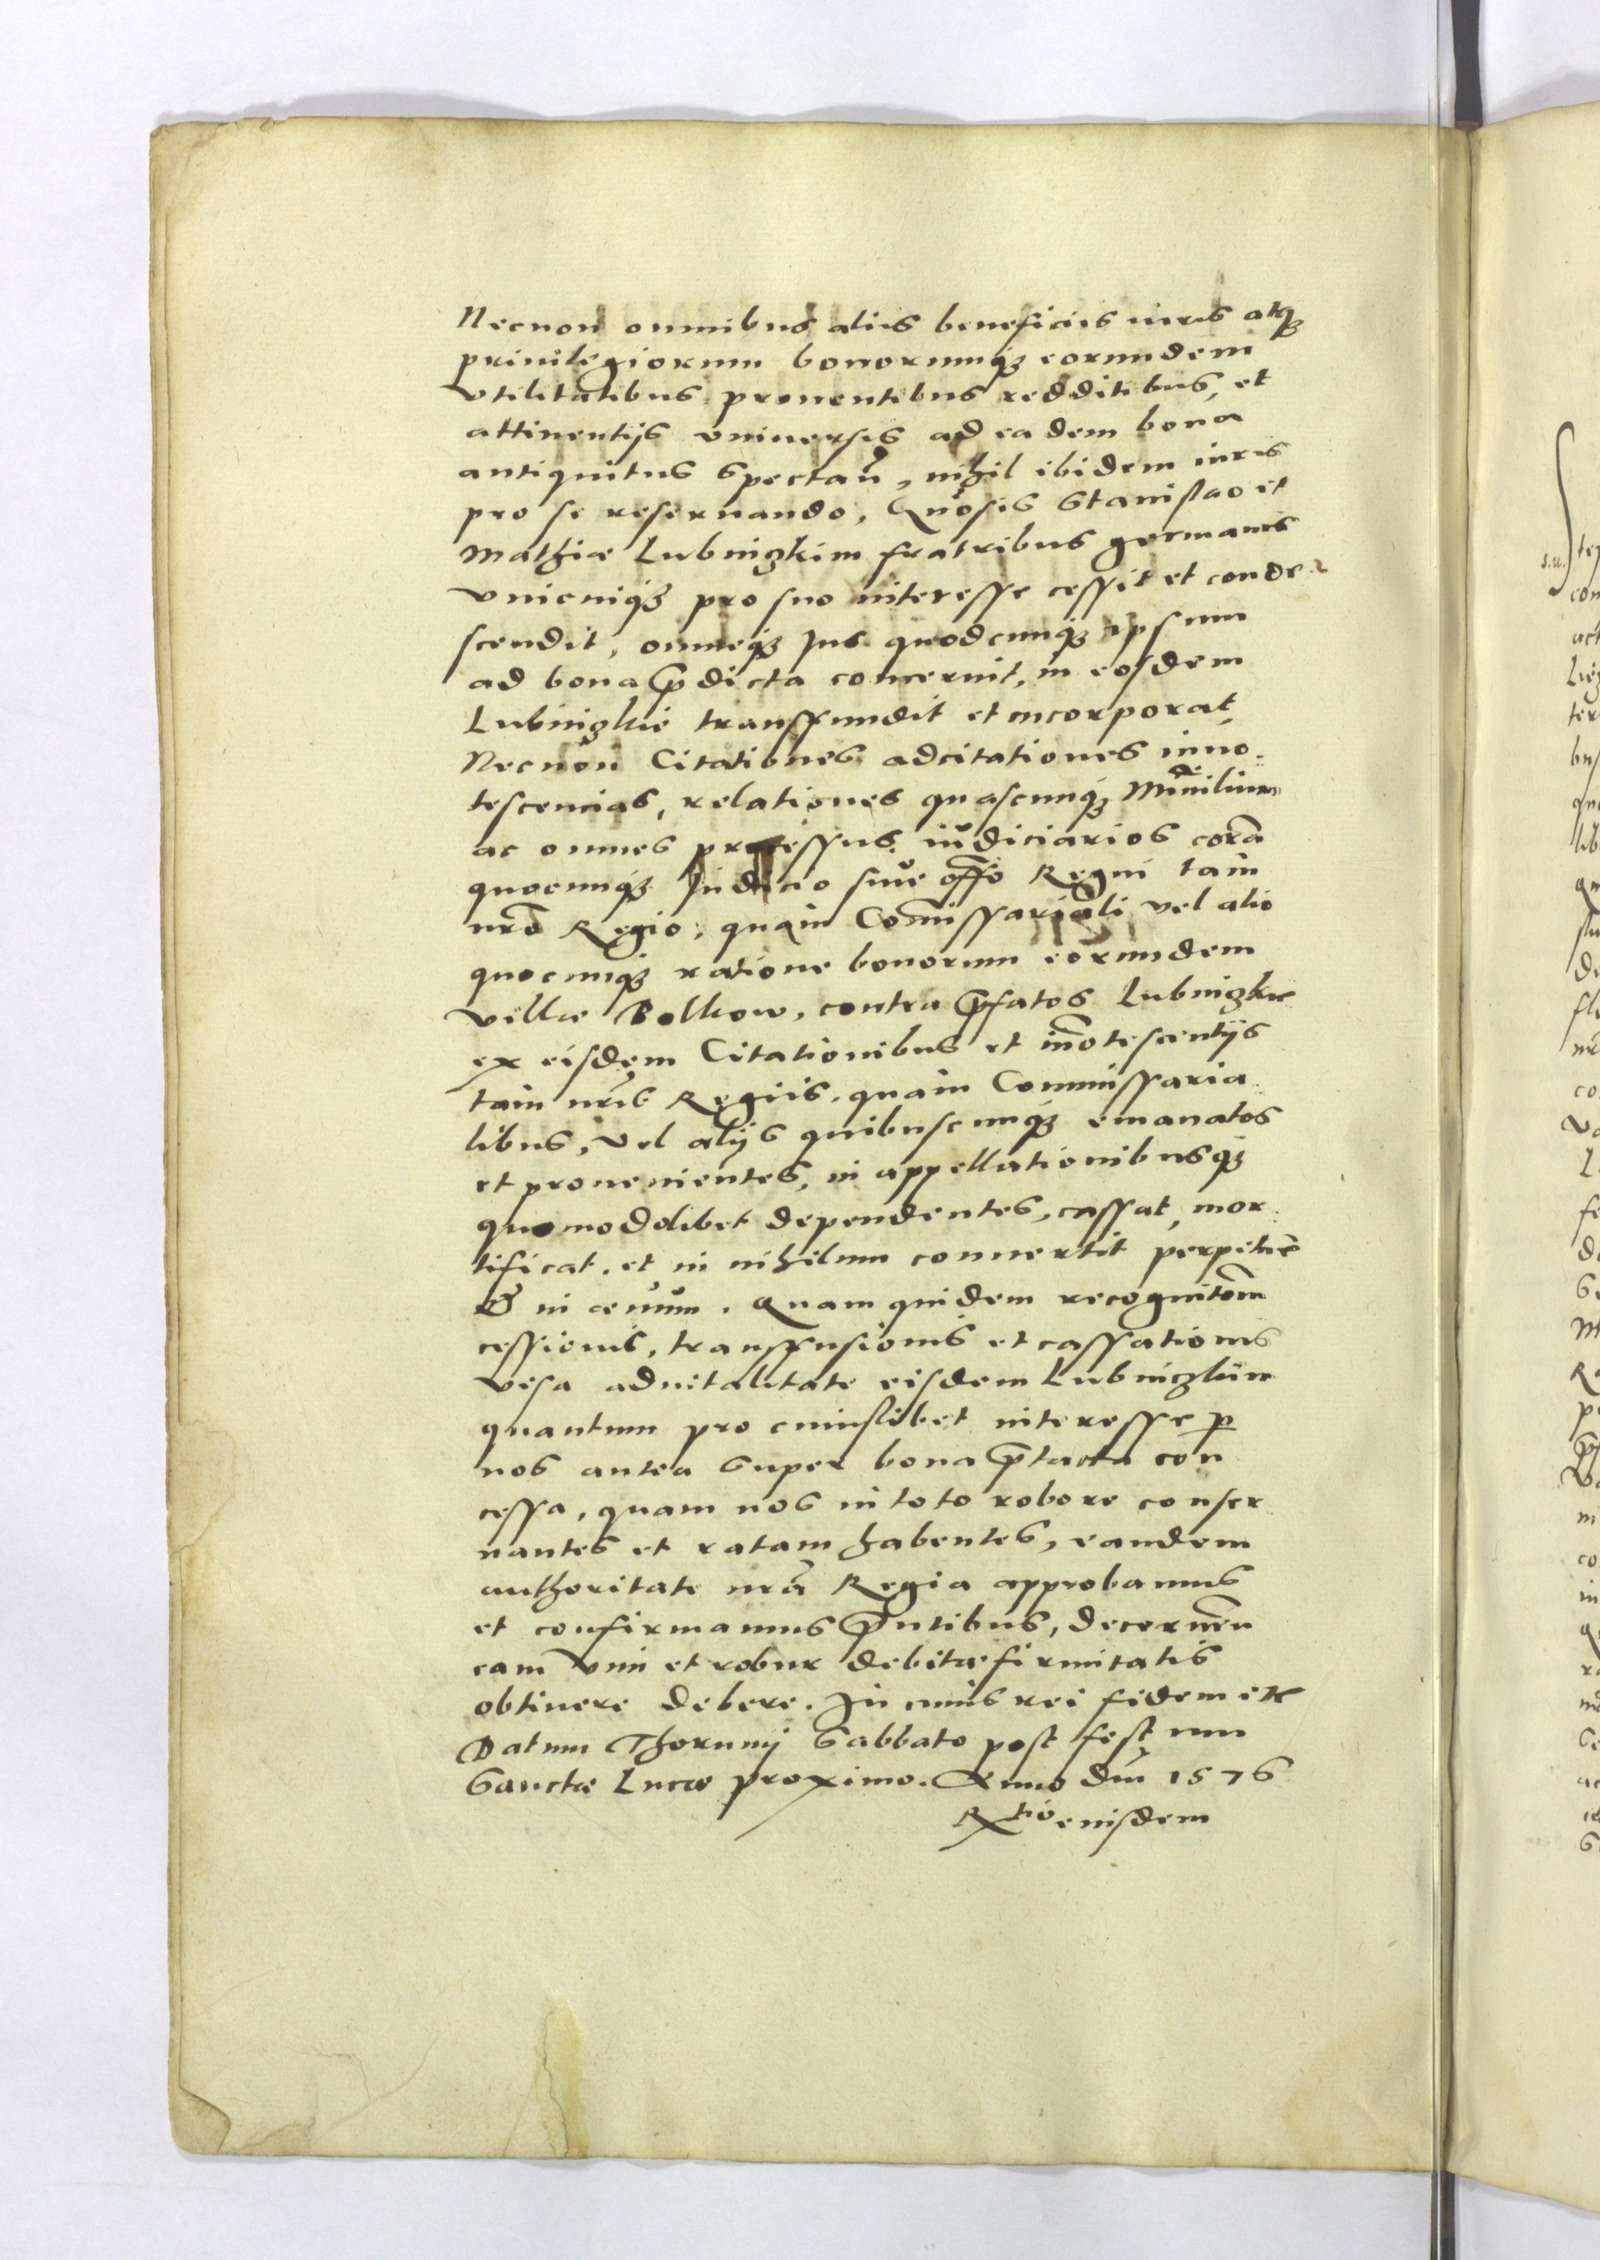 Necnon omnibus aliis beneficiis iuris atq3
priuilegiorum bonorumq3 eorundem
vtilitatibus prouentibus redditibus, et
attinentijs vniuersis ad eadem bona
antiquitus spectañ, nihil ibidem iuris
pro se reseruando, Quosis Stanislao et
Mathiæ Lubniczkim fratribus germanis
vnicuiq3 pro suo interesse cessit et conde-
scendit, omneq3 Jus quodcunq3 ipsum
ad bona p̃dicta concernit, in eosdem
Lubniczkie transfundit et incorporat,
Necnon Citationes adcitationes inno-
tescencias, relationes quascunq3 Minilium
ac omnes processus iudiciarios corã
quocunq3 Judicio siue offo Regni tam
nrõ Regio, quam Com̃issariali vel alio
quocunq3 ratione bonorum eorundem
villæ Bolkow, contra p̃fatos Lubniczkie
ex eisdem Citationibus et iñotescentijs
tam nr̃is Regiis, quam Commissaria
libus, vel alijs quibuscunq3 emanatos
et prouenientes, in appellationibusq3
quomodolibet dependentes, cassat, mor
tificat, et in nihilum conuertit perpetuè
& in æuum. Quam quidem recognitõm
cessionis, transfusionis et cassationis
visa aduitalitate eisdem Lubniczkim
quantum pro cuiuslibet interesse p
nos antea super bona p̃tacta con
cessa, quam nos in toto robore conser
uantes et ratam habentes, eandem
authoritate nrã Regia approbamus
et confirmamus p̃ntibus, decerneñ
eam vim et robur debitæ firmitatis
obtinere debere. In cuius rei fidem etc
Datum Thorunij Sabbato post festum
Sanctæ Lucæ proximo. Anno Dñi 1576
Rtio eiusdem